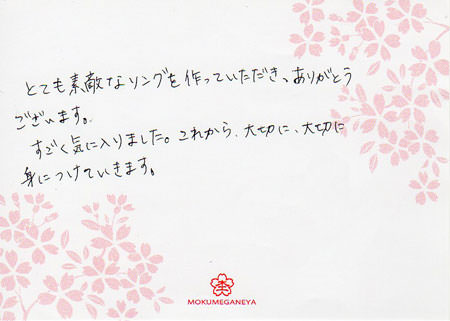 とても素敵なリングを作っていただき、ありがとう
ございます。
すごく気に入りました。これから、大切に、大切に
身につけていきます。
杢
MOKUMEGANEYA